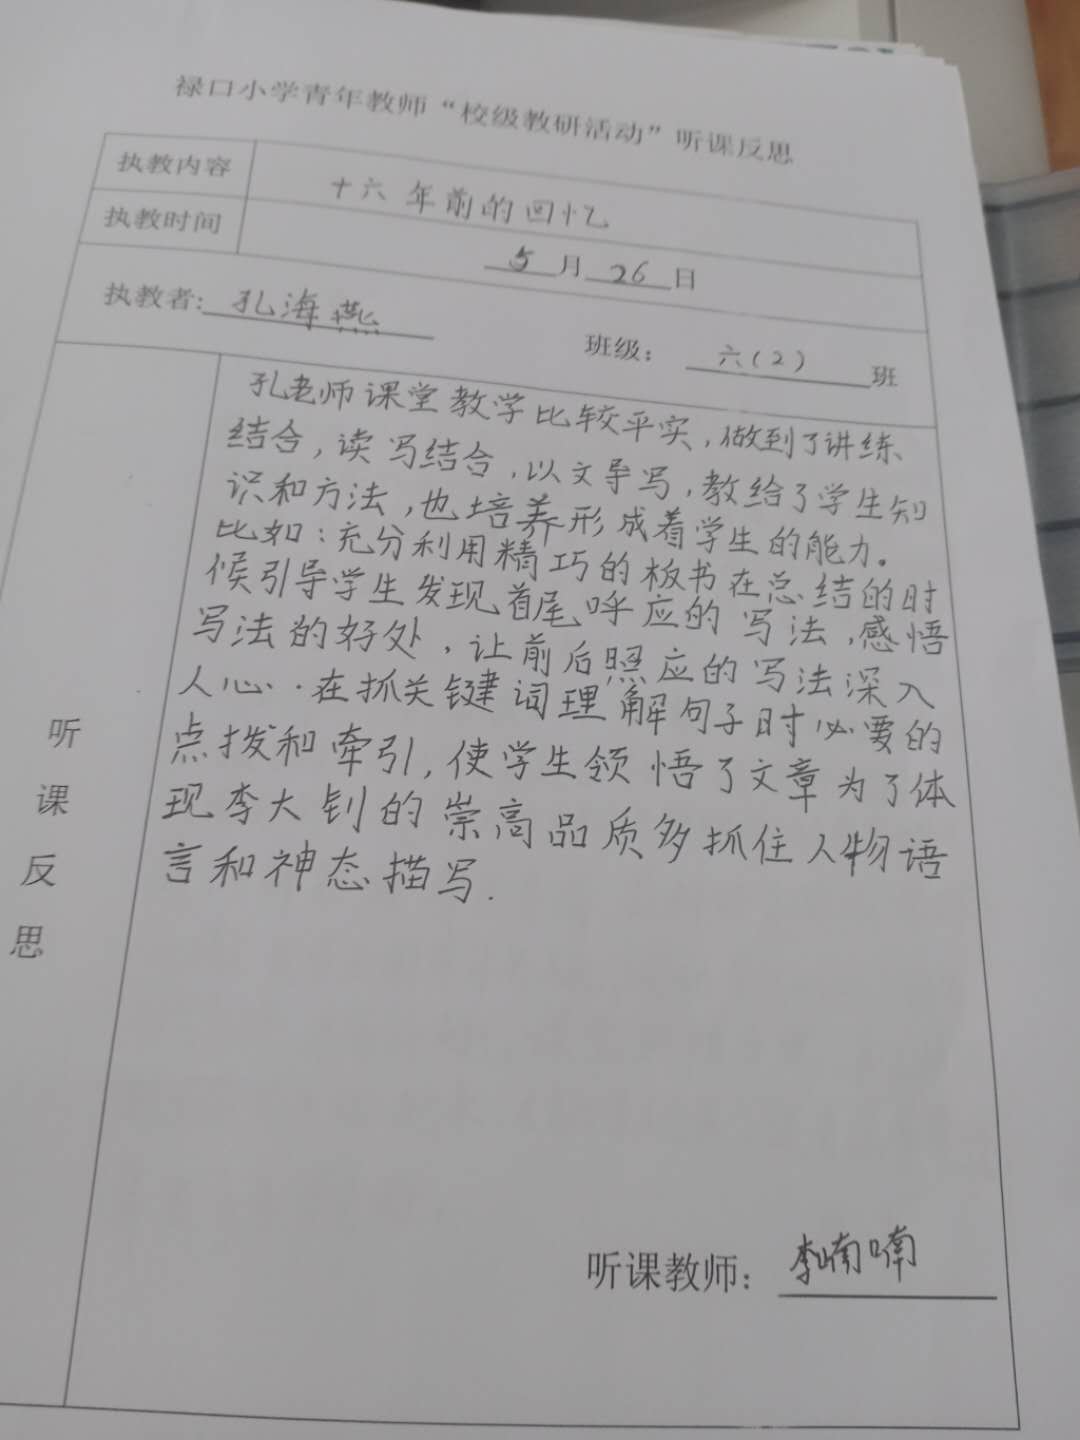 禄口小学青年教师“校级教研活动”听课反思
执教内容 十六年前的回忆
执教时间 5月26日
执教者:孔海燕 班级：六(2)班
孔老师课堂教学比较平实，做到了讲练
结合，读写结合，以文导写，教给了学生知
识和方法，也培养形成着学生的能力。
比如：充分利用精巧的板书在总结的时
候引导学生发现首尾呼应的写法，感悟
写法的好处，让前后照应的写法深入
人心..在抓关键词理解句子时必要的
点拨和牵引，使学生领悟了文章为了体
现李大钊的崇高品质多抓住人物语
言和神态描写.
听课反思
听课教师：李喃喃